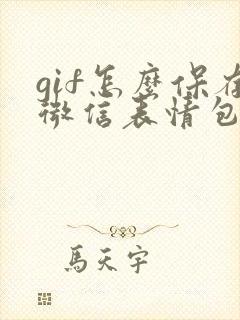 gif怎麼保存
微信表情包
馬天宇